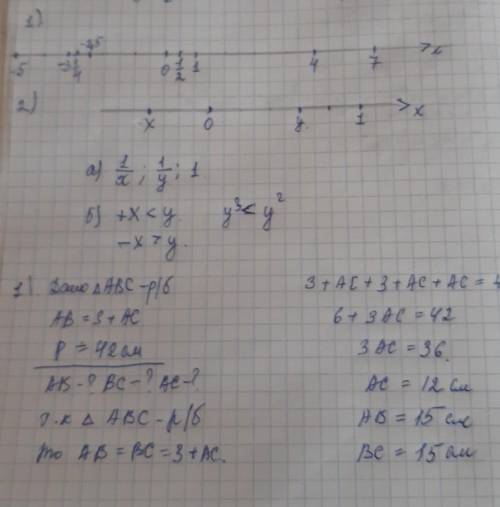 1)
-5 -3 1/4 -2,5 0 1/2 1 4 7 x
2)
-x 0 y 1 x
а) 1/x ; 1/y ; 1
б) +x < y y³ < y²
-x > y.
1) Дано △ABC - р/б
AB = 3 + AC
P = 42 см
AB - ? BC - ? AC - ?
т.к △ ABC - р/б
то AB = BC = 3 + AC.
3 + AC + 3 + AC + AC = 4
6 + 3AC = 42
3AC = 36.
AC = 12 см
AB = 15 см
BC = 15 см